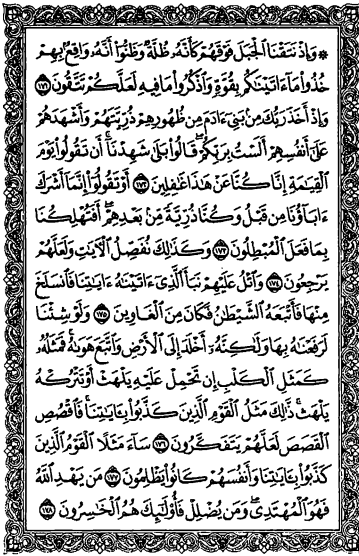 ۞ وَإِذْ نَتَقْنَا ٱلْجَبَلَ فَوْقَهُمْ كَأَنَّهُۥ ظُلَّةٌ وَظَنُّوٓا۟ أَنَّهُۥ وَاقِعٌۢ بِهِمْ
خُذُوا۟ مَآ ءَاتَيْنَٰكُم بِقُوَّةٍ وَٱذْكُرُوا۟ مَا فِيهِ لَعَلَّكُمْ تَتَّقُونَ ١٧١
وَإِذْ أَخَذَ رَبُّكَ مِنۢ بَنِىٓ ءَادَمَ مِن ظُهُورِهِمْ ذُرِّيَّتَهُمْ وَأَشْهَدَهُمْ
عَلَىٰٓ أَنفُسِهِمْ أَلَسْتُ بِرَبِّكُمْ قَالُوا۟ بَلَىٰ شَهِدْنَآ أَن تَقُولُوا۟ يَوْمَ
ٱلْقِيَٰمَةِ إِنَّا كُنَّا عَنْ هَٰذَا غَٰفِلِينَ ١٧٢ أَوْ تَقُولُوٓا۟ إِنَّمَآ أَشْرَكَ
ءَابَآؤُنَا مِن قَبْلُ وَكُنَّا ذُرِّيَّةً مِّنۢ بَعْدِهِمْ أَفَتُهْلِكُنَا
بِمَا فَعَلَ ٱلْمُبْطِلُونَ ١٧٣ وَكَذَٰلِكَ نُفَصِّلُ ٱلْءَايَٰتِ وَلَعَلَّهُمْ
يَرْجِعُونَ ١٧٤ وَٱتْلُ عَلَيْهِمْ نَبَأَ ٱلَّذِىٓ ءَاتَيْنَٰهُ ءَايَٰتِنَا فَٱنسَلَخَ
مِنْهَا فَأَتْبَعَهُ ٱلشَّيْطَٰنُ فَكَانَ مِنَ ٱلْغَاوِينَ ١٧٥ وَلَوْ شِئْنَا
لَرَفَعْنَٰهُ بِهَا وَلَٰكِنَّهُۥٓ أَخْلَدَ إِلَى ٱلْأَرْضِ وَٱتَّبَعَ هَوَىٰهُ فَمَثَلُهُۥ
كَمَثَلِ ٱلْكَلْبِ إِن تَحْمِلْ عَلَيْهِ يَلْهَثْ أَوْ تَتْرُكْهُ
يَلْهَث ذَّٰلِكَ مَثَلُ ٱلْقَوْمِ ٱلَّذِينَ كَذَّبُوا۟ بِـَٔايَٰتِنَا فَٱقْصُصِ
ٱلْقَصَصَ لَعَلَّهُمْ يَتَفَكَّرُونَ ١٧٦ سَآءَ مَثَلًا ٱلْقَوْمُ ٱلَّذِينَ
كَذَّبُوا۟ بِـَٔايَٰتِنَا وَأَنفُسَهُمْ كَانُوا۟ يَظْلِمُونَ ١٧٧ مَن يَهْدِ ٱللَّهُ
فَهُوَ ٱلْمُهْتَدِى وَمَن يُضْلِلْ فَأُو۟لَٰٓئِكَ هُمُ ٱلْخَٰسِرُونَ ١٧٨